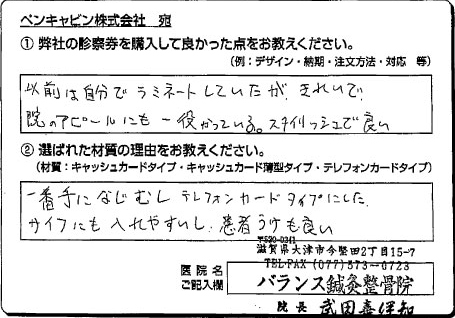 ペンキャビン株式会社 宛
① 弊社の診察券を購入して良かった点をお教えください。
(例：デザイン・納期・注文方法・対応 等)
以前は自分でラミネートしていたが、きれいで
院のアピールにも一役かっている。スタイリッシュで良い
② 選ばれた材質の理由をお教えください。
(材質：キャッシュカードタイプ・キャッシュカード薄型タイプ・テレフォンカードタイプ)
一番手になじむし テレフォンカードタイプにした。
サイフにも入れやすいし、患者うけも良い
〒520-0241
滋賀県大津市今堅田2丁目15-7
TEL・FAX (077)573-0723
医院名
ご記入欄
バランス鍼灸整骨院
院長 武田